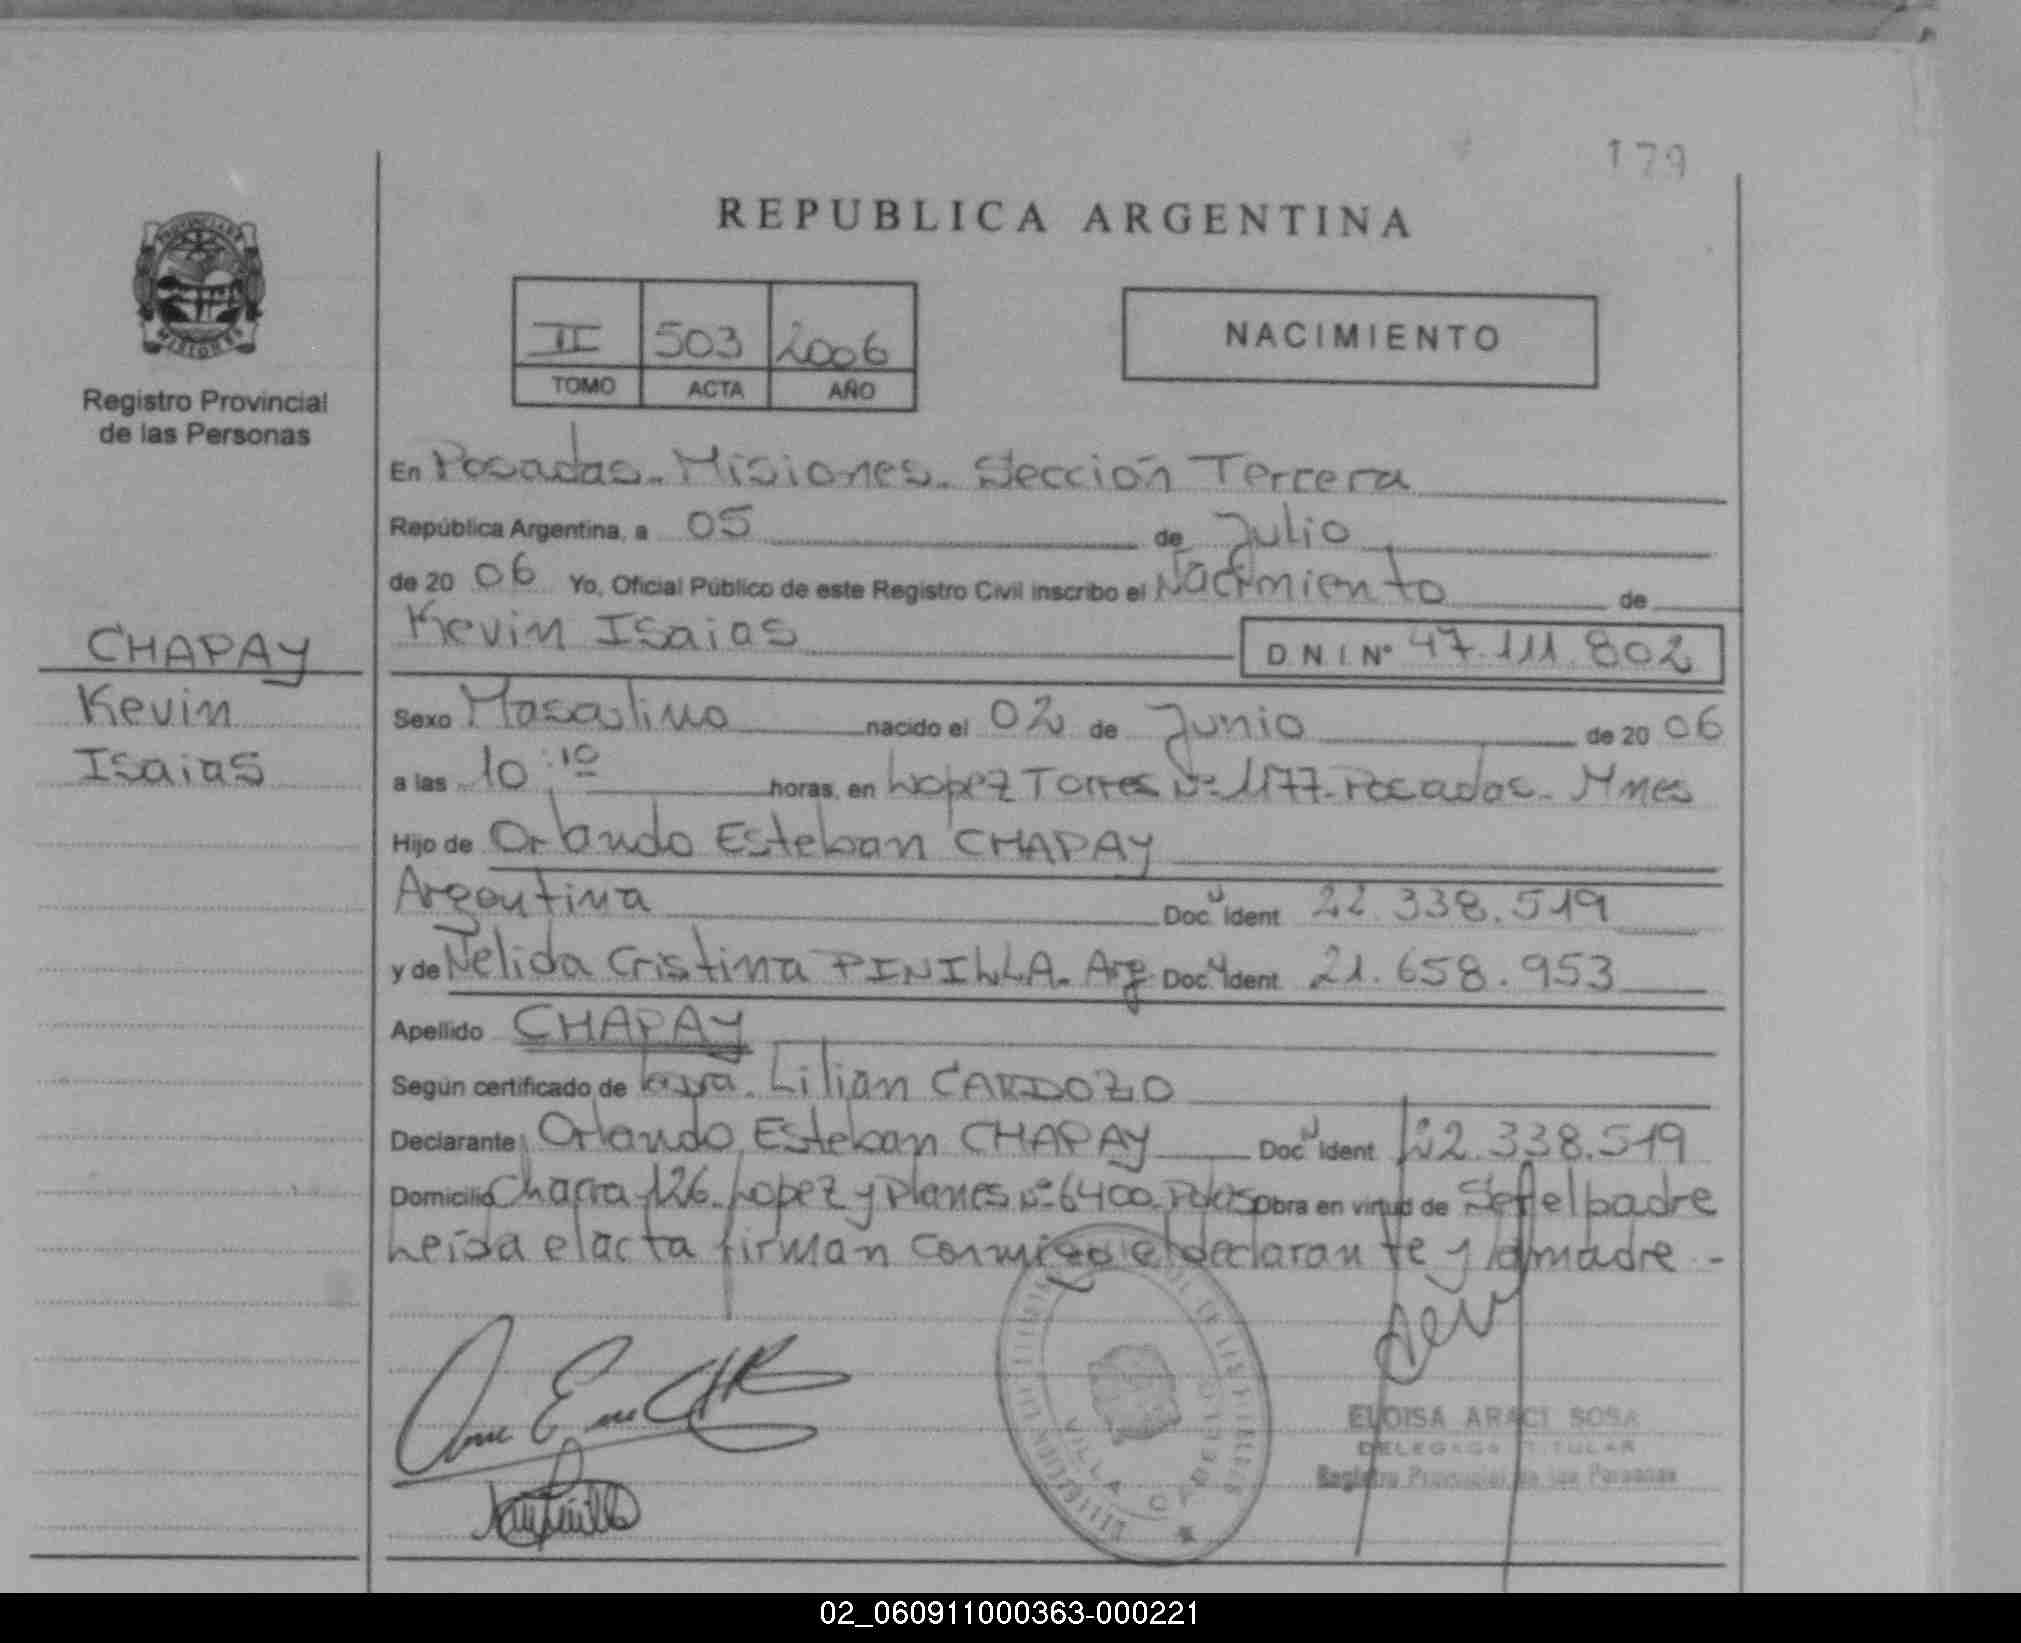 179
REPUBLICA ARGENTINA
II 503 2006
TOMO ACTA AÑO
NACIMIENTO
PROVINCIA DE
MISIONES
Registro Provincial
de las Personas
CHAPAY
Kevin
Isaias
En Posadas - Misiones - Sección Tercera
República Argentina, a 05 de Julio
de 2006 Yo, Oficial Público de este Registro Civil inscribo el Nacimiento de
Kevin Isaias D N I Nº 47.111.802
Sexo Masculino nacido el 02 de Junio de 2006
a las 10:10 horas, en Lopez Torres Nº 1177 - Posadas - Mnes
Hijo de Orlando Esteban CHAPAY
Argentina Doc. Ident 22.338.519
y de Nelida Cristina PINILLA - Arg Doc. Ident. 21.658.953
Apellido CHAPAY
Según certificado de Lilian CARDOZO
Declarante Orlando Esteban CHAPAY Doc Ident 22.338.519
Domicilio Chacra 126. Lopez y Planes Nº 6400. Pdas Obra en virtud de Ser el padre
Leída el acta firman conmigo el declarante y la madre -
VILLA CABELLO
ELOISA ARACI SOSA
DELEGADA TITULAR
Registro Provincial de las Personas
02_060911000363-000221